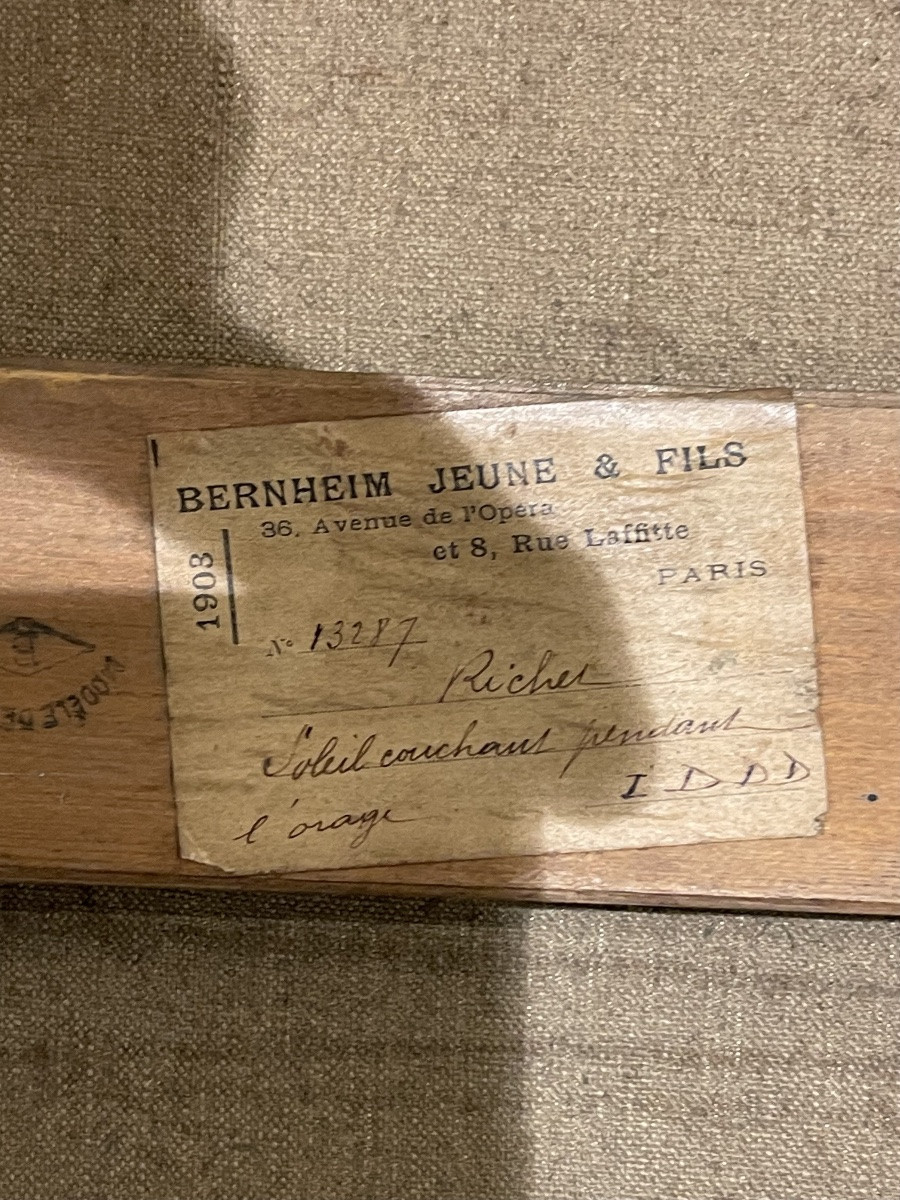 BERNHEIM JEUNE & FILS
36, Avenue de l'Opéra
et 8, Rue Laffitte
PARIS
1903
No 13287
Richet
Soleil couchant pendant
l'orage
I D D D
MODÈLE DE